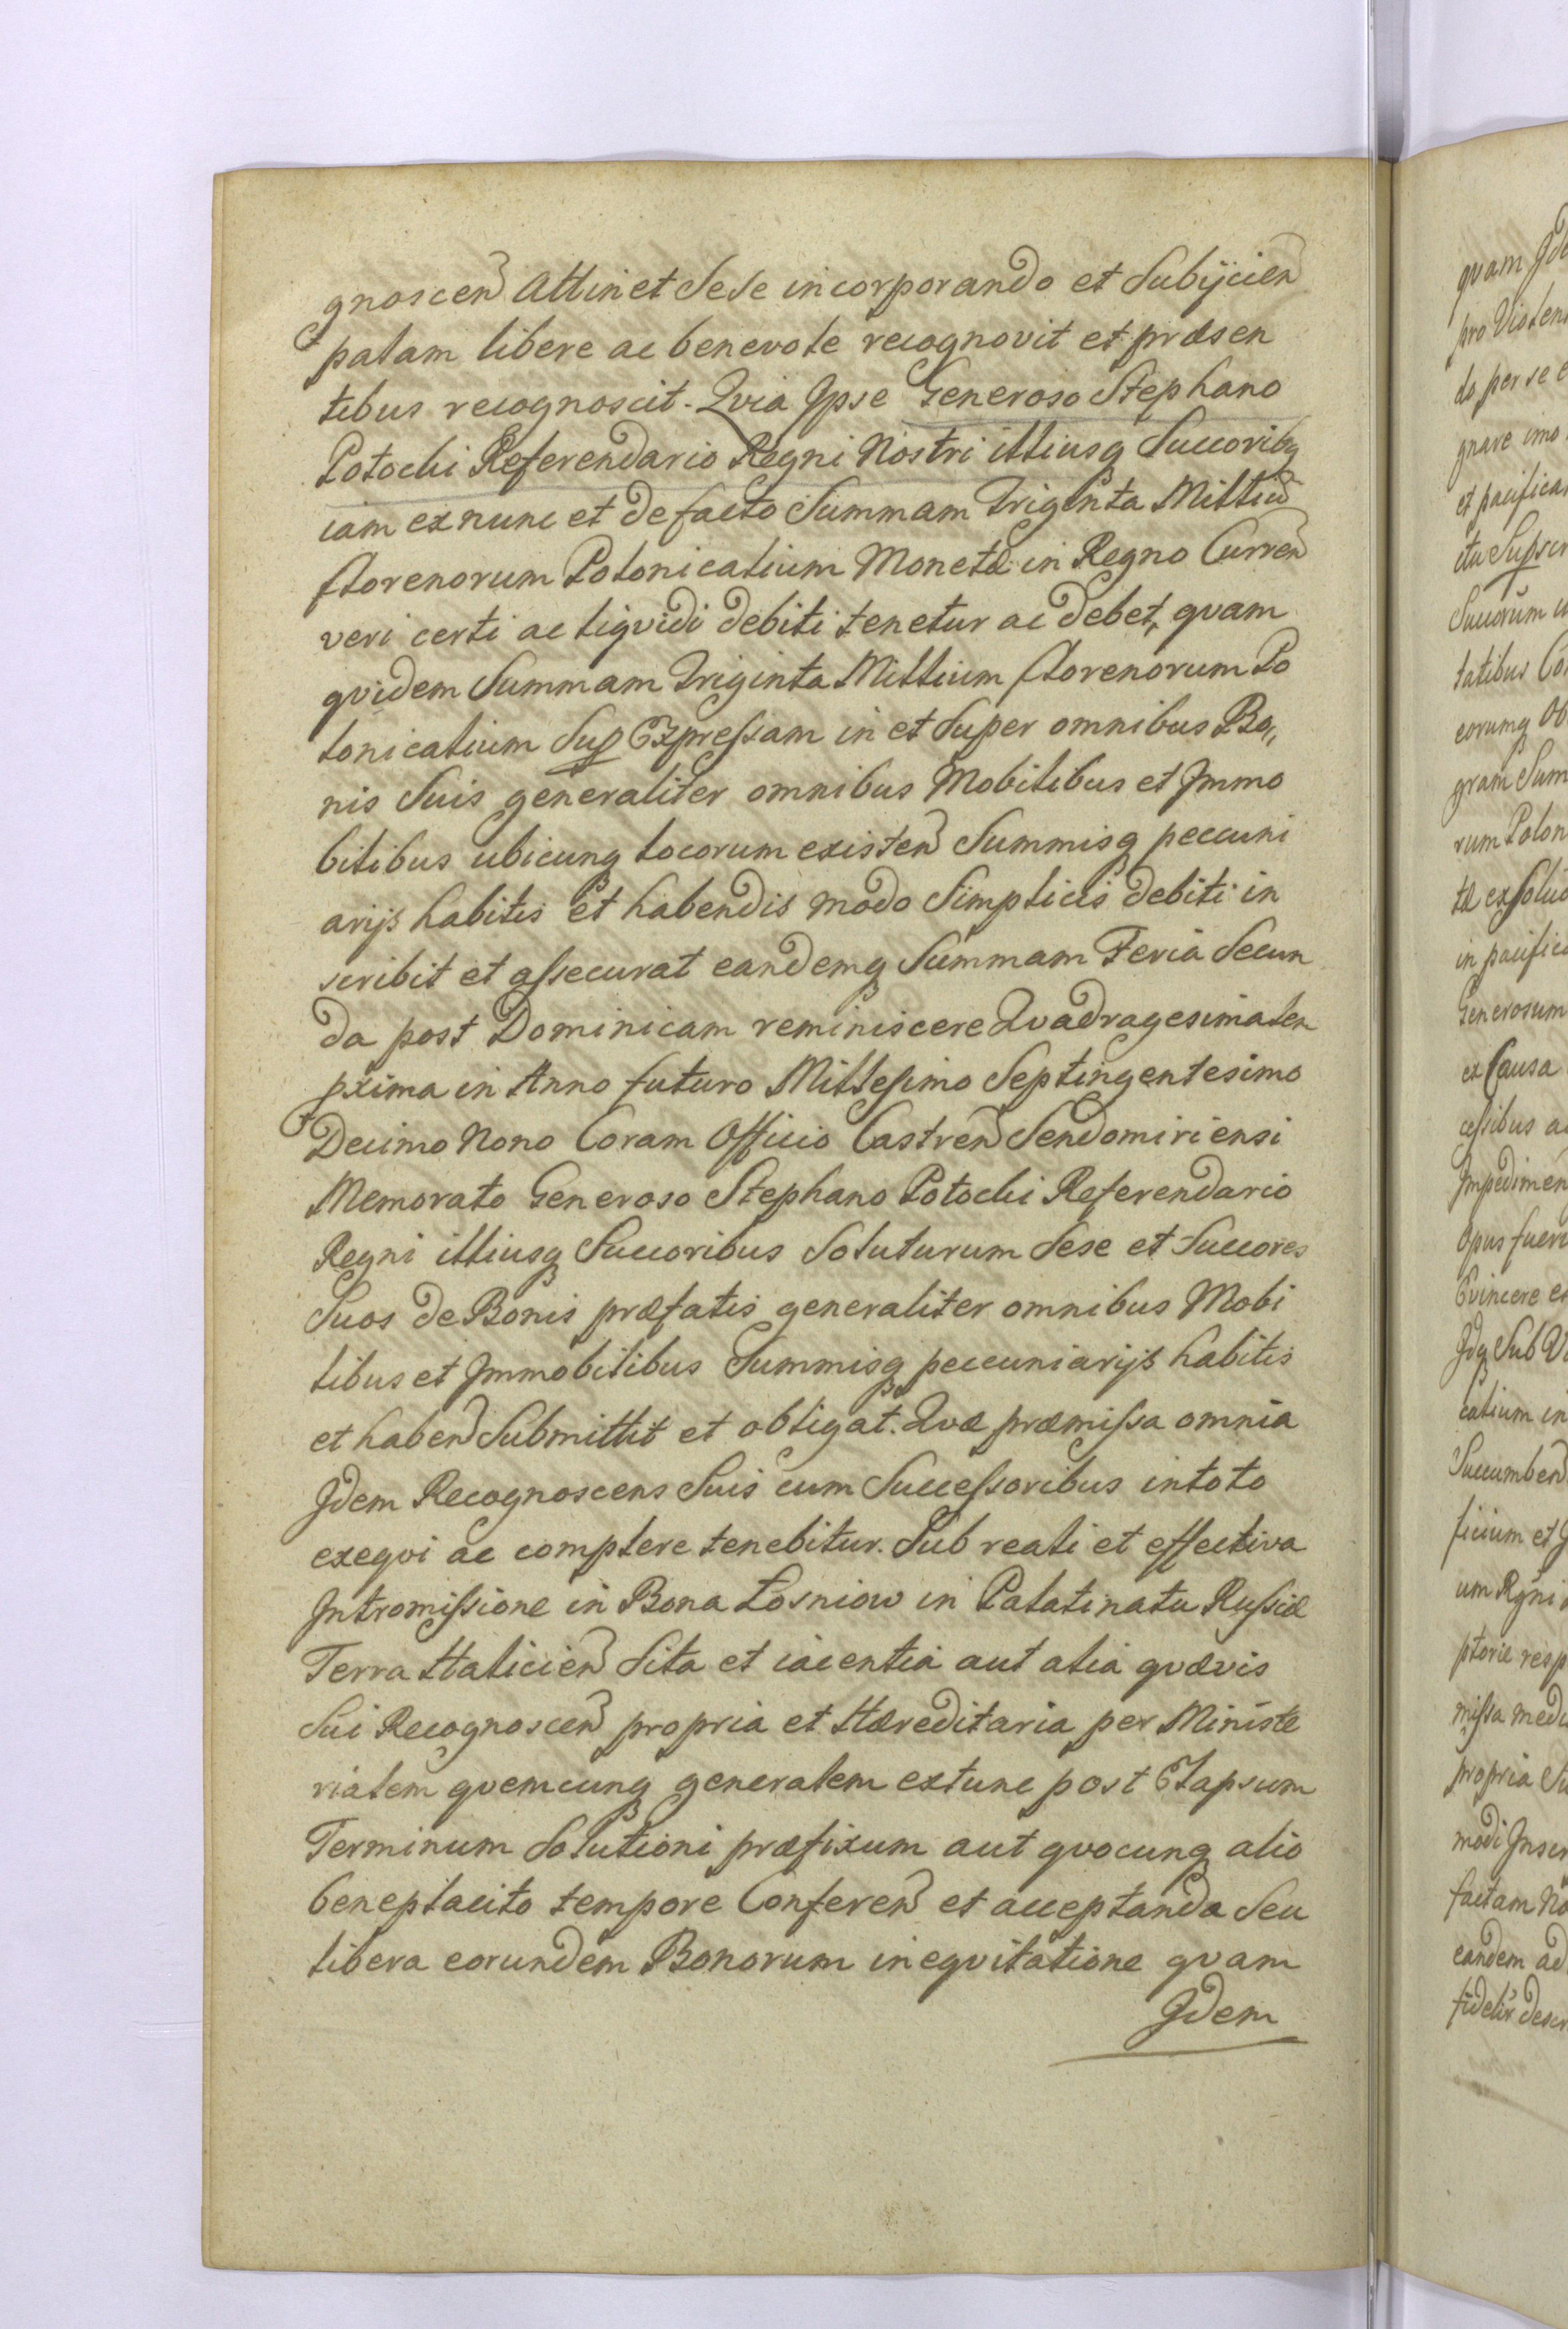 gnoscen attinet sese incorporando et subijcien
palam libere ac benevole recognovit et præsen
tibus recognoscit. Qvia Ipse Generoso Stephano
Potocki Referendario Regni Nostri illiusq Succoribq
iam ex nunc et de facto Summam Triginta Milliu
florenorum Polonicalium Monetæ in Regno Curren
veri certi ac liqvidi debiti tenetur ac debet, qvam
qvidem Summam Triginta Millium florenorum Po
lonicalium Sup Expressam in et super omnibus Bo„
nis Suis generaliter omnibus Mobilibus et Immo
bilibus ubicunq locorum existen Summisq peccuni
arijs habitis et habendis modo Simplicis debiti in
scribit et assecurat eandemq Summam Feria Secun
da post Dominicam reminiscere Qvadragesimalem
pxima in Anno futuro Millesimo Septingentesimo
Decimo Nono Coram Officio Castren Sendomiriensi
Memorato Generoso Stephano Potocki Referendario
Regni illiusq Succoribus Soluturum Sese et Succores
Suos de Bonis præfatis generaliter omnibus Mobi
libus et Immobilibus Summisq peccuniarijs habitis
et haben Submittit et obligat. Qvæ præmissa omnia
Idem Recognoscens Suis cum Successoribus in toto
exeqvi ac complere tenebitur. Sub reali et effectiva
Intromissione in Bona Łosniow in Palatinatu Russiæ
Terra Halicien Sita et iacentia aut alia qvævis
Sui Recognoscen propria et Hæreditaria per Ministe
rialem qvemcunq generalem extunc post Elapsum
Terminum Solutioni præfixum aut qvocunq alio
beneplacito tempore Conferen et acceptanda Seu
libera eorundem Bonorum ineqvitatione qvam
Idem
qvam Ide
do per se e
gnare imo
et pacifica
tatibus Co
eorumq Ob
gram Sum
rum Polon
in pacific
Generosum
ex Causa
cessibus a
Impedimen
Opus fueri
Evincere et
Idq Sub V
calium in
Succumben
ficium et I
missa medi
propria Su
modi Inscr
factam No
eandem ad